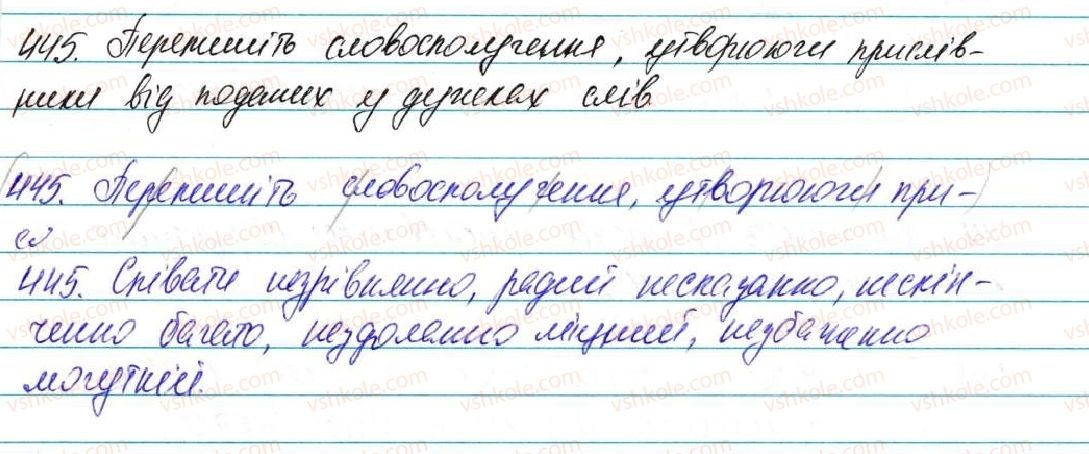 445. Перепишіть словосполучення, утворюючи прислів-
ники від поданих у дужках слів
445. Перепишіть словосполучення, утворюючи при-
сл
445. Співати незрівнянно, радий несказанно, нескін-
ченно багато, нездоланно міцний, незбагненно
могутній.